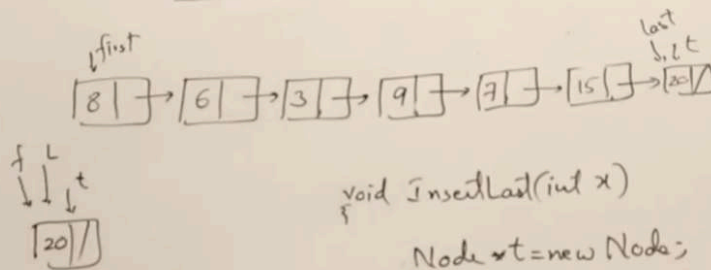 first
last
t
8 6 3 9 7 15 20
f L
t
20
void InsertLast(int x)
{
Node *t=new Node;